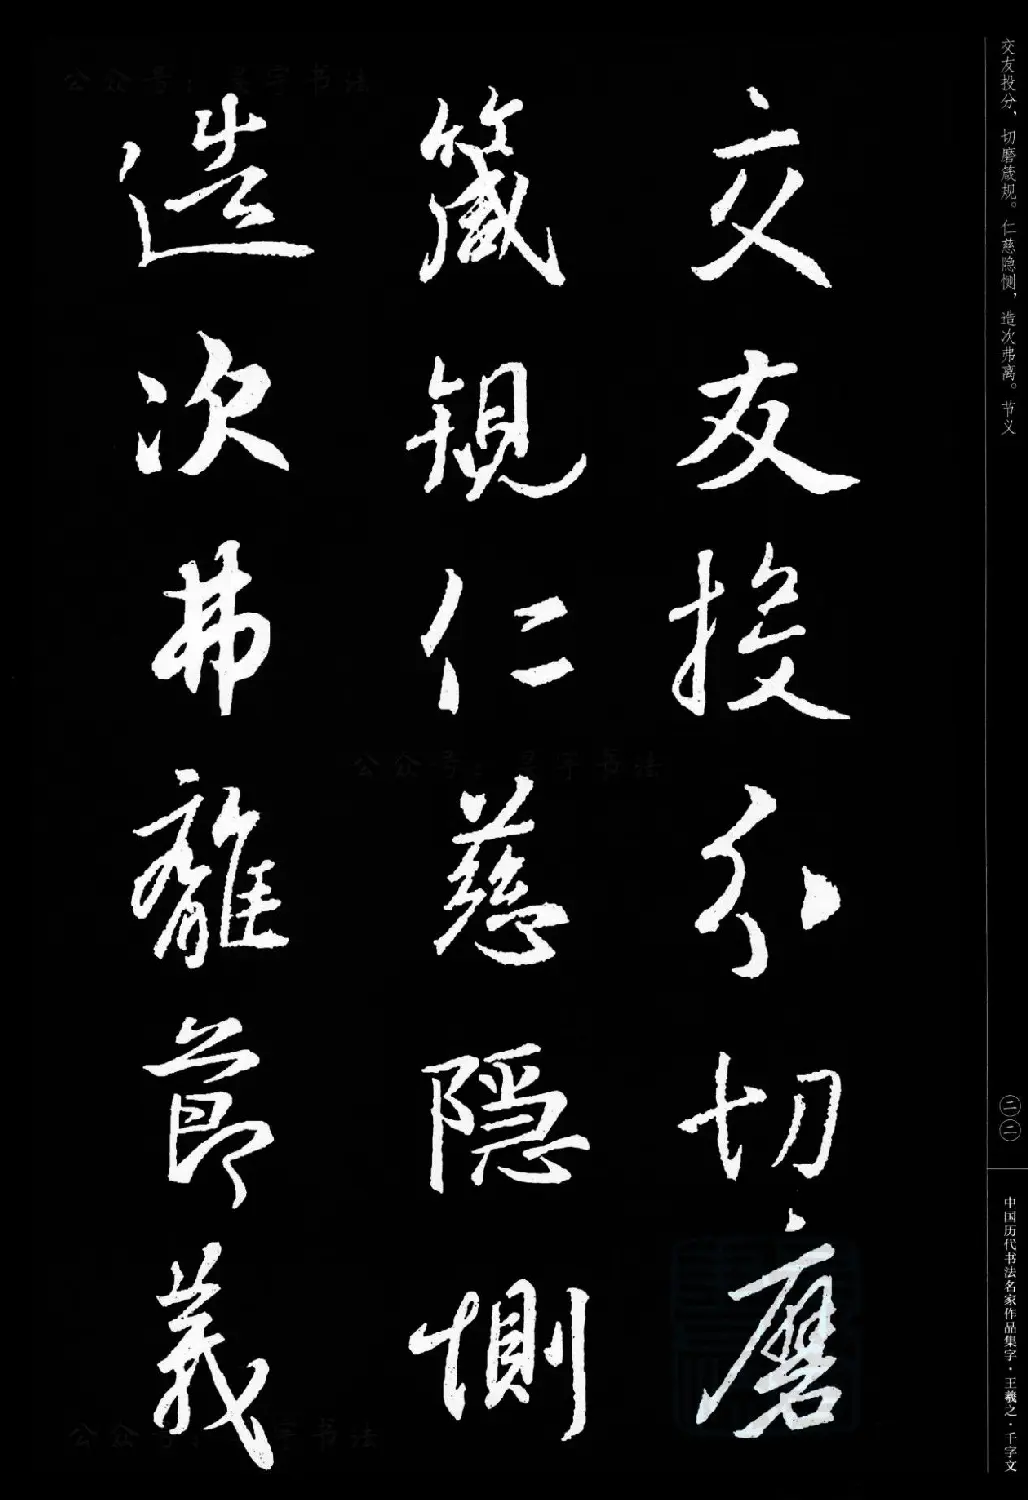 交友投分切磨
箴規仁慈隱惻
造次弗離節義
交友投分，切磨箴规。仁慈隐恻，造次弗离。节义
二二
中国历代书法名家作品集字·王羲之·千字文